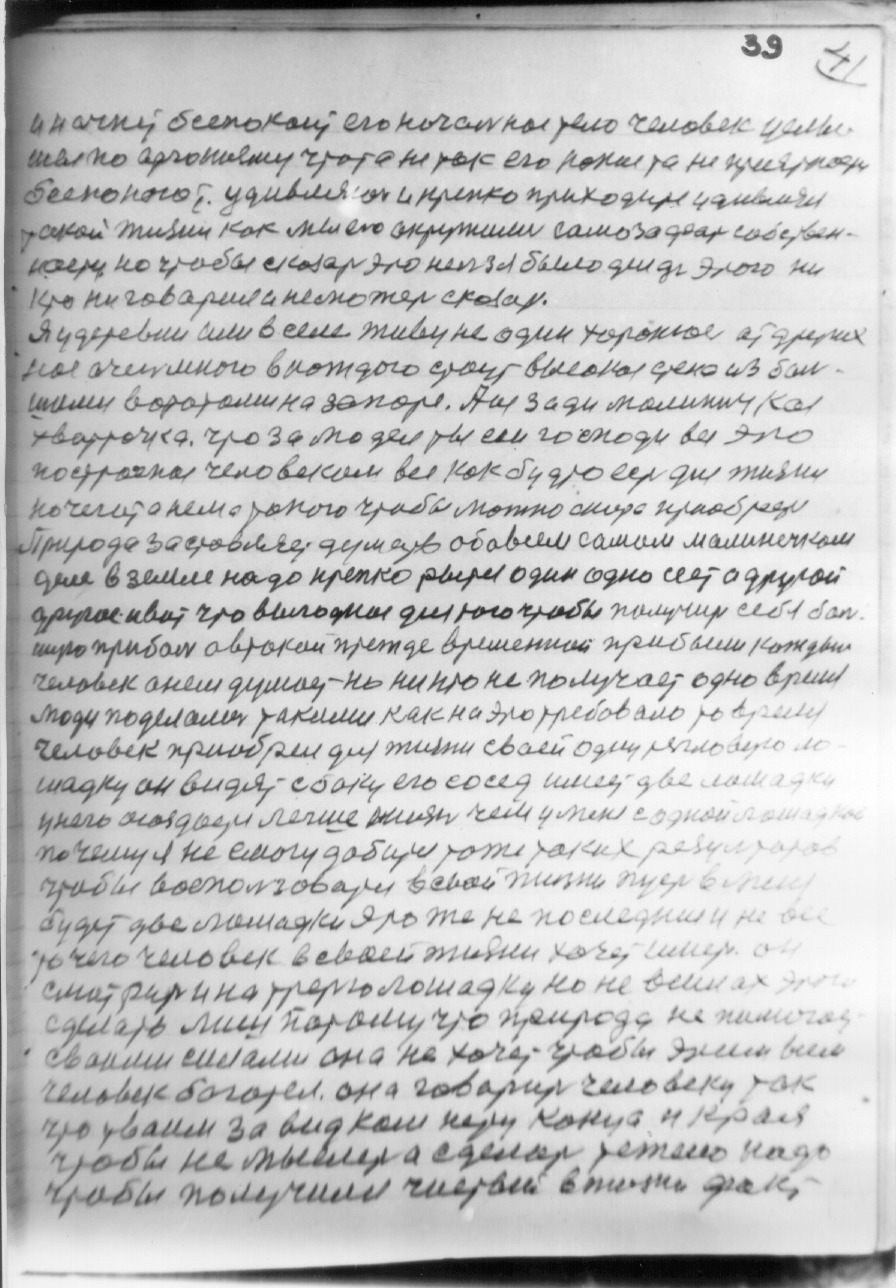 39 41
и начнет беспокоит его начальное тело человек
по организму что та не так его
беспокоит. удивляися и крепко приходится удивляця
такой жизни как мы его окружили само задеат собствен-
ность но чтобы сказат это нельзя было для этого ни
кто ни говарил и не может сказат.
Я у деревни или в селе живу не один харошое от других
нас очен много в каждого стоит высокая стена из бол-
шими воротами на запоре. А из зади малинич кая
хварточка. что за люди ты еси господи все это
построеное человеком все как будто ест для жизни
но чегото нема такого чтобы можно скора приобрест
Природа заставляет думать обо всем самом малинечком
деле в земле надо крепко рытя один одно сеет а другой
другое. ивот что выгодное для того чтобы получит себя бол-
шую прибол а в такой прежде временной прибыли каждый
человек онем думает но никто не получает одно время
люди поделалися такими как на это требовало то время
человек приобрел для жизни своей одну тягловую ло-
шадку он видят с боку его сосед имеет две лошадки
у него легше жизнь чем у мене с одной лошадкой
почему я не смогу добитя тоже таких резултатов
чтобы воспользоватя в своей жизни пуст в мене
будет две лошадки это же не последнии и не все
то чего человек в своей жизни хочет имет. он
смотрит и на третю лошадку но не в силах этого
сделать лиш потому что природа не помогает
своими силами она не хочет чтобы этим всем
человек богател. она говарит человеку так
что твоим завидкам нету конца и края
чтобы не мыслет а сделат тежело надо
чтобы получили чистый в жизни факт